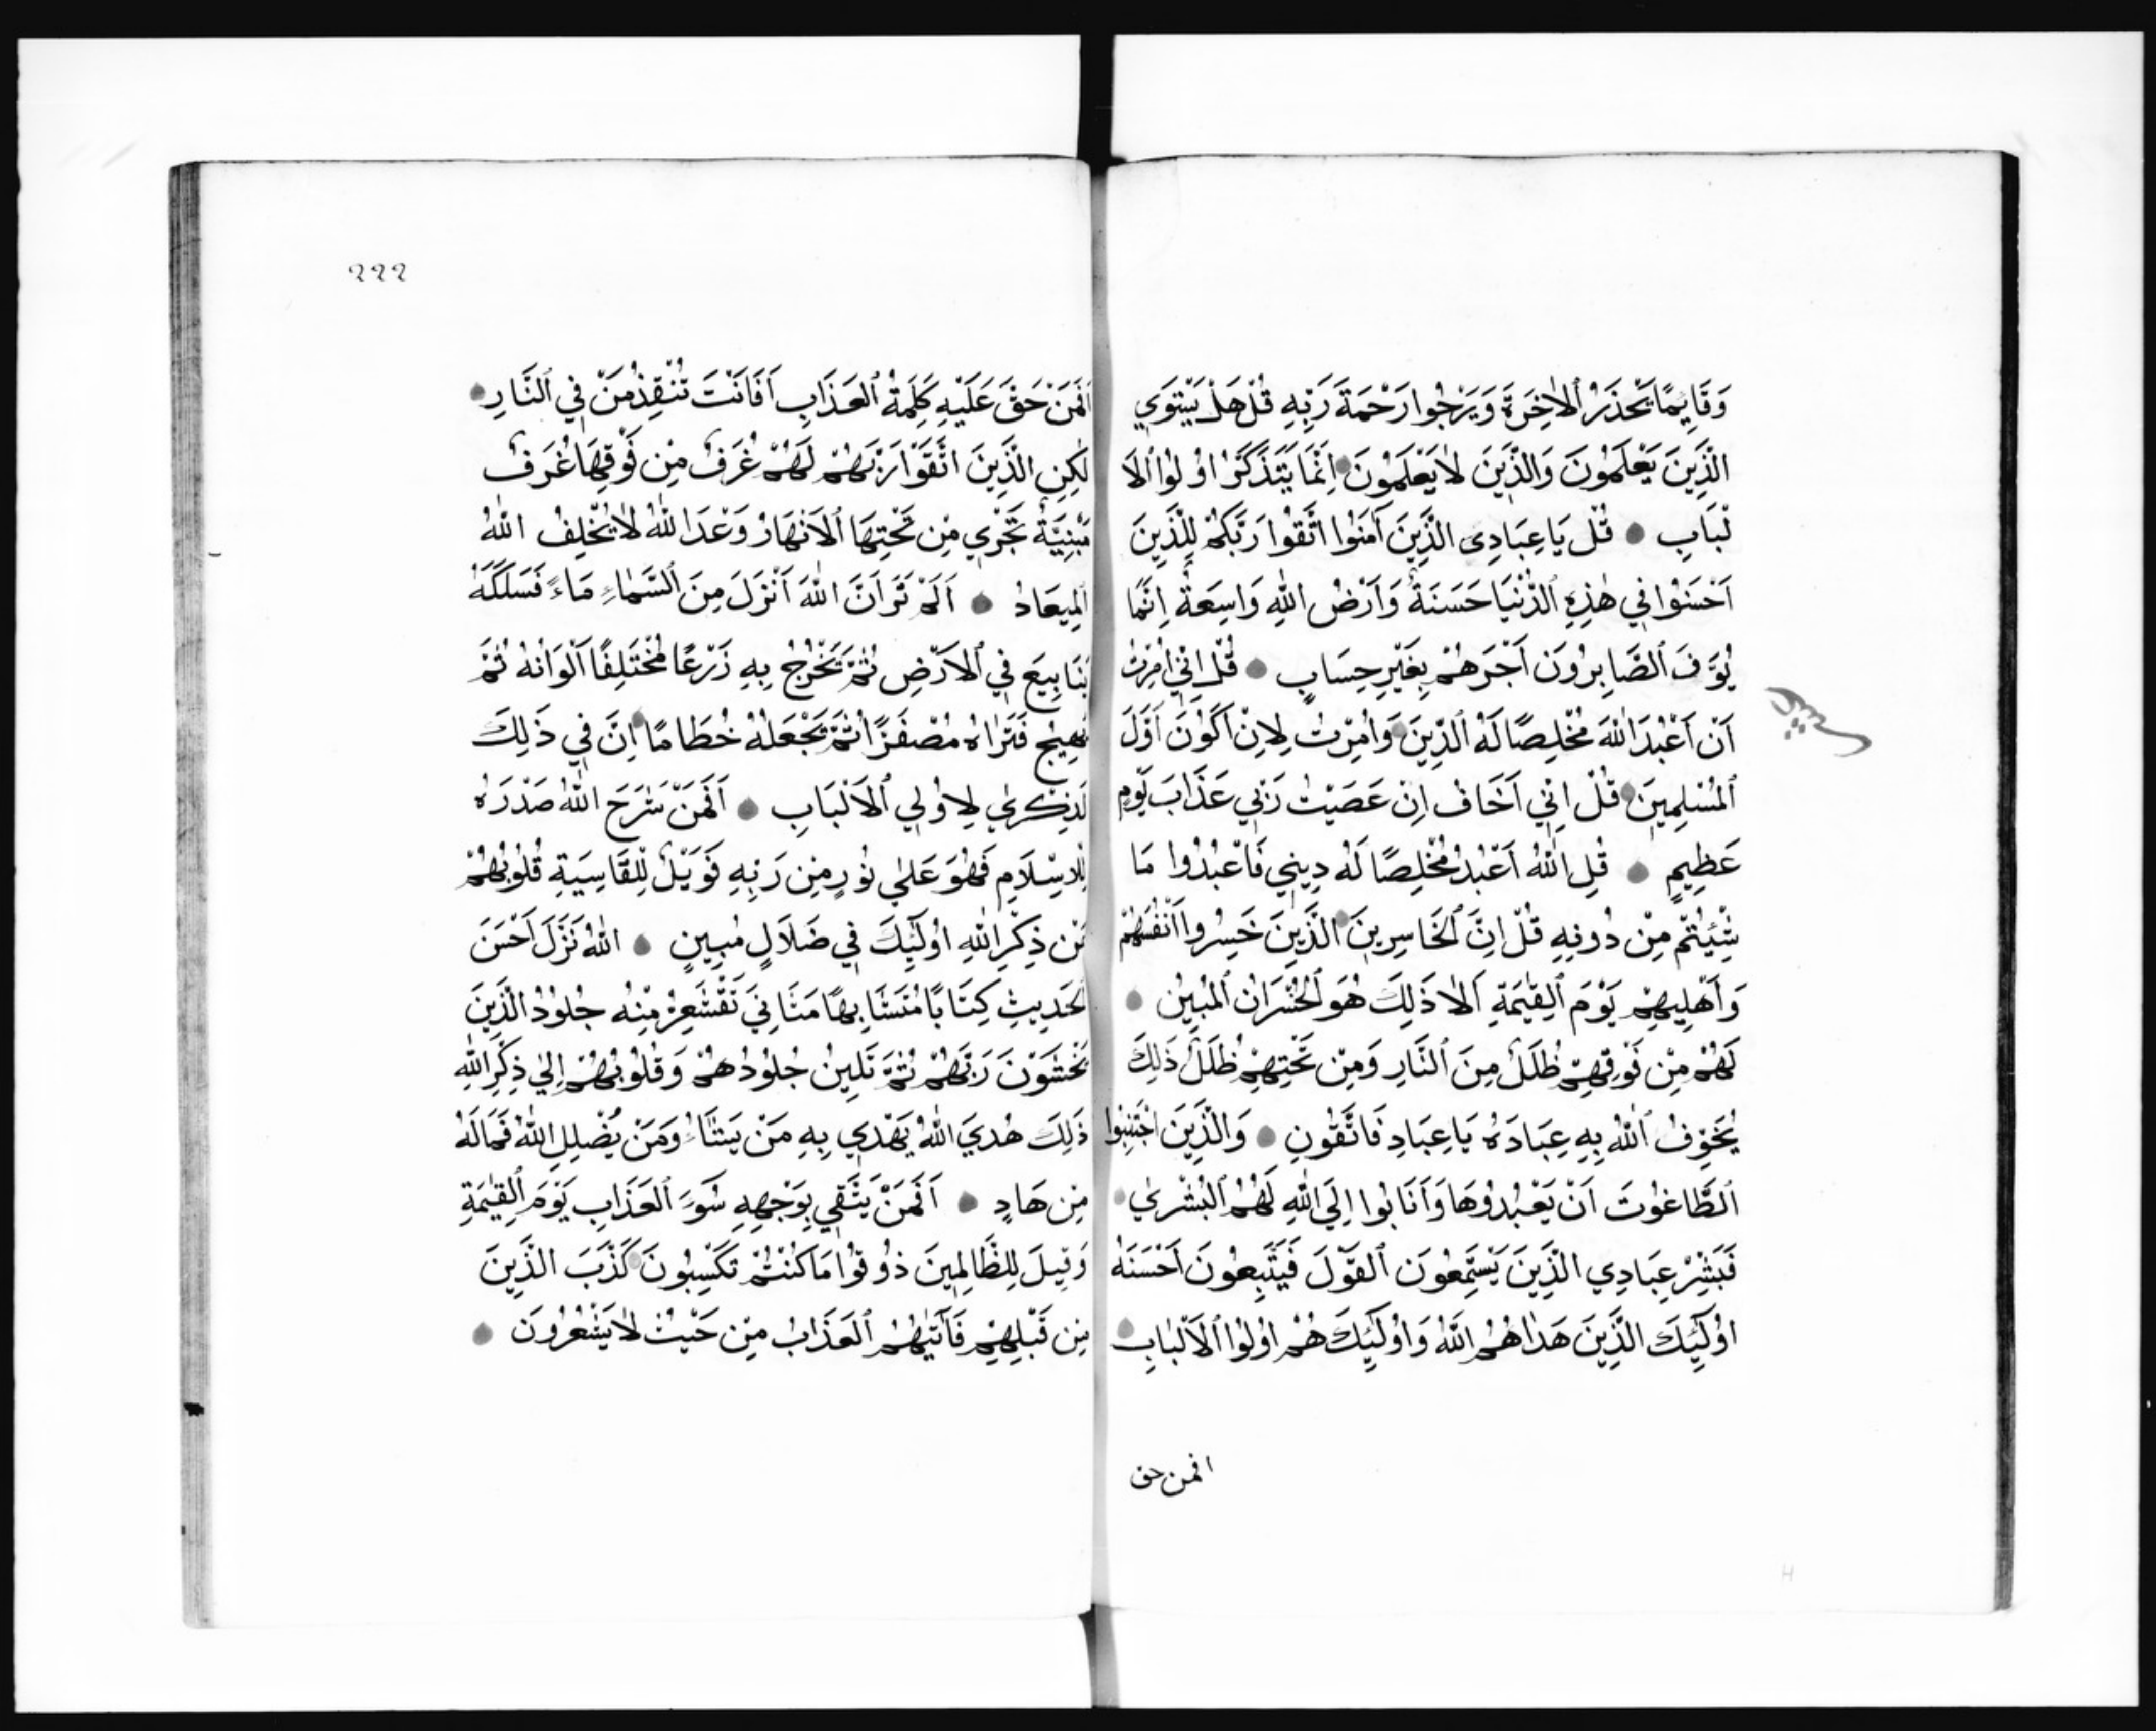 وَقَائِمًا يَحْذَرُ الْاٰخِرَةَ وَيَرْجُوا رَحْمَةَ رَبِّهِ قُلْ هَلْ يَسْتَوِي
الَّذِينَ يَعْلَمُونَ وَالَّذِينَ لَا يَعْلَمُونَ اِنَّمَا يَتَذَكَّرُ اُولُوا الْاَ
لْبَابِ قُلْ يَا عِبَادِيَ الَّذِينَ آمَنُوا اتَّقُوا رَبَّكُمْ لِلَّذِينَ
اَحْسَنُوا فِي هٰذِهِ الدُّنْيَا حَسَنَةٌ وَاَرْضُ اللّٰهِ وَاسِعَةٌ اِنَّمَا
يُوَفَّ الصَّابِرُونَ اَجْرَهُمْ بِغَيْرِ حِسَابٍ قُلْ اِنِّي اُمِرْتُ
اَنْ اَعْبُدَ اللّٰهَ مُخْلِصًا لَهُ الدِّينَ وَاُمِرْتُ لِاَنْ اَكُونَ اَوَّلَ
الْمُسْلِمِينَ قُلْ اِنِّي اَخَافُ اِنْ عَصَيْتُ رَبِّي عَذَابَ يَوْمٍ
عَظِيمٍ قُلِ اللّٰهُ اَعْبُدُ مُخْلِصًا لَهُ دِينِي فَاعْبُدُوا مَا
شِئْتُمْ مِنْ دُونِهِ قُلْ اِنَّ الْخَاسِرِينَ الَّذِينَ خَسِرُوا اَنْفُسَهُمْ
وَاَهْلِيهِمْ يَوْمَ الْقِيٰمَةِ اَلَا ذَلِكَ هُوَ الْخُسْرَانُ الْمُبِينُ
لَهُمْ مِنْ فَوْقِهِمْ ظُلَلٌ مِنَ النَّارِ وَمِنْ تَحْتِهِمْ ظُلَلٌ ذٰلِكَ
يُخَوِّفُ اللّٰهُ بِهِ عِبَادَهُ يَا عِبَادِ فَاتَّقُونِ وَالَّذِينَ اجْتَنَبُوا
الطَّاغُوتَ اَنْ يَعْبُدُوهَا وَاَنَابُوا اِلَي اللّٰهِ لَهُمُ الْبُشْرٰي
فَبَشِّرْ عِبَادِي الَّذِينَ يَسْتَمِعُونَ الْقَوْلَ فَيَتَّبِعُونَ اَحْسَنَهُ
اُولٰئِكَ الَّذِينَ هَدٰاهُمُ اللّٰهُ وَاُولٰئِكَ هُمْ اُولُوا الْاَلْبَابِ
افمن حق
٢٢٢
اَفَمَنْ حَقَّ عَلَيْهِ كَلِمَةُ الْعَذَابِ اَفَاَنْتَ تُنْقِذُ مَنْ فِي النَّارِ
لٰكِنِ الَّذِينَ اتَّقَوْا رَبَّهُمْ لَهُمْ غُرَفٌ مِنْ فَوْقِهَا غُرَفٌ
مَبْنِيَّةٌ تَجْرِي مِنْ تَحْتِهَا الْاَنْهَارُ وَعْدَ اللّٰهِ لَا يُخْلِفُ اللّٰهُ
الْمِيعَادَ اَلَمْ تَرَ اَنَّ اللّٰهَ اَنْزَلَ مِنَ السَّمَاءِ مَاءً فَسَلَكَهُ
يَنَابِيعَ فِي الْاَرْضِ ثُمَّ يَخْرُجُ بِهِ زَرْعًا مُخْتَلِفًا اَلْوَانُهُ ثُمَّ
يَهِيجُ فَتَرٰاهُ مُصْفَرًّا ثُمَّ يَجْعَلُهُ حُطَامًا اِنَّ فِي ذَلِكَ
لَذِكْرٰي لِاُولِي الْاَلْبَابِ اَفَمَنْ شَرَحَ اللّٰهُ صَدْرَهُ
لِلْاِسْلَامِ فَهُوَ عَلٰي نُورٍ مِنْ رَبِّهِ فَوَيْلٌ لِلْقَاسِيَةِ قُلُوبُهُمْ
مِنْ ذِكْرِ اللّٰهِ اُولٰئِكَ فِي ضَلَالٍ مُبِينٍ اَللّٰهُ نَزَّلَ اَحْسَنَ
الْحَدِيثِ كِتَابًا مُتَشَابِهًا مَثَانِيَ تَقْشَعِرُّ مِنْهُ جُلُودُ الَّذِينَ
يَخْشَوْنَ رَبَّهُمْ ثُمَّ تَلِينُ جُلُودُهُمْ وَقُلُوبُهُمْ اِلٰي ذِكْرِ اللّٰهِ
ذٰلِكَ هُدَي اللّٰهِ يَهْدِي بِهِ مَنْ يَشَاءُ وَمَنْ يُضْلِلِ اللّٰهُ فَمَالَهُ
مِنْ هَادٍ اَفَمَنْ يَتَّقِي بِوَجْهِهِ سُوءَ الْعَذَابِ يَوْمَ الْقِيٰمَةِ
وَقِيلَ لِلظَّالِمِينَ ذُوقُوا مَا كُنْتُمْ تَكْسِبُونَ كَذَّبَ الَّذِينَ
مِنْ قَبْلِهِمْ فَآتٰيهُمُ الْعَذَابُ مِنْ حَيْثُ لَا يَشْعُرُونَ